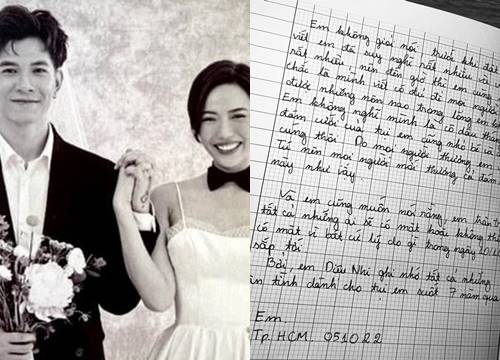 Em không giỏi nói, trước khi đặt
viết em đã suy nghĩ rất nhiều và
rất nhiều, nên đến giờ thì em cũng
chắc là mình viết có đủ để mọi người
được những nôn nao trong lòng em
Em không nghĩ mình là cô dâu
đám cưới của tụi em cũng nhỏ bé
cùng thôi. Do mọi người thương em
Tú nên mọi người mới thương cả đám
này như vậy.
Và em cũng muốn nói rằng, em trân
tất cả những ai sẽ có mặt hoặc không
có mặt vì bất cứ lý do gì trong ngày
sắp tới.
Bởi, em Diệu Nhi ghi nhớ tất cả những
ân tình dành cho tụi em suốt 7 năm qua
Em
Tp. HCM. 051022